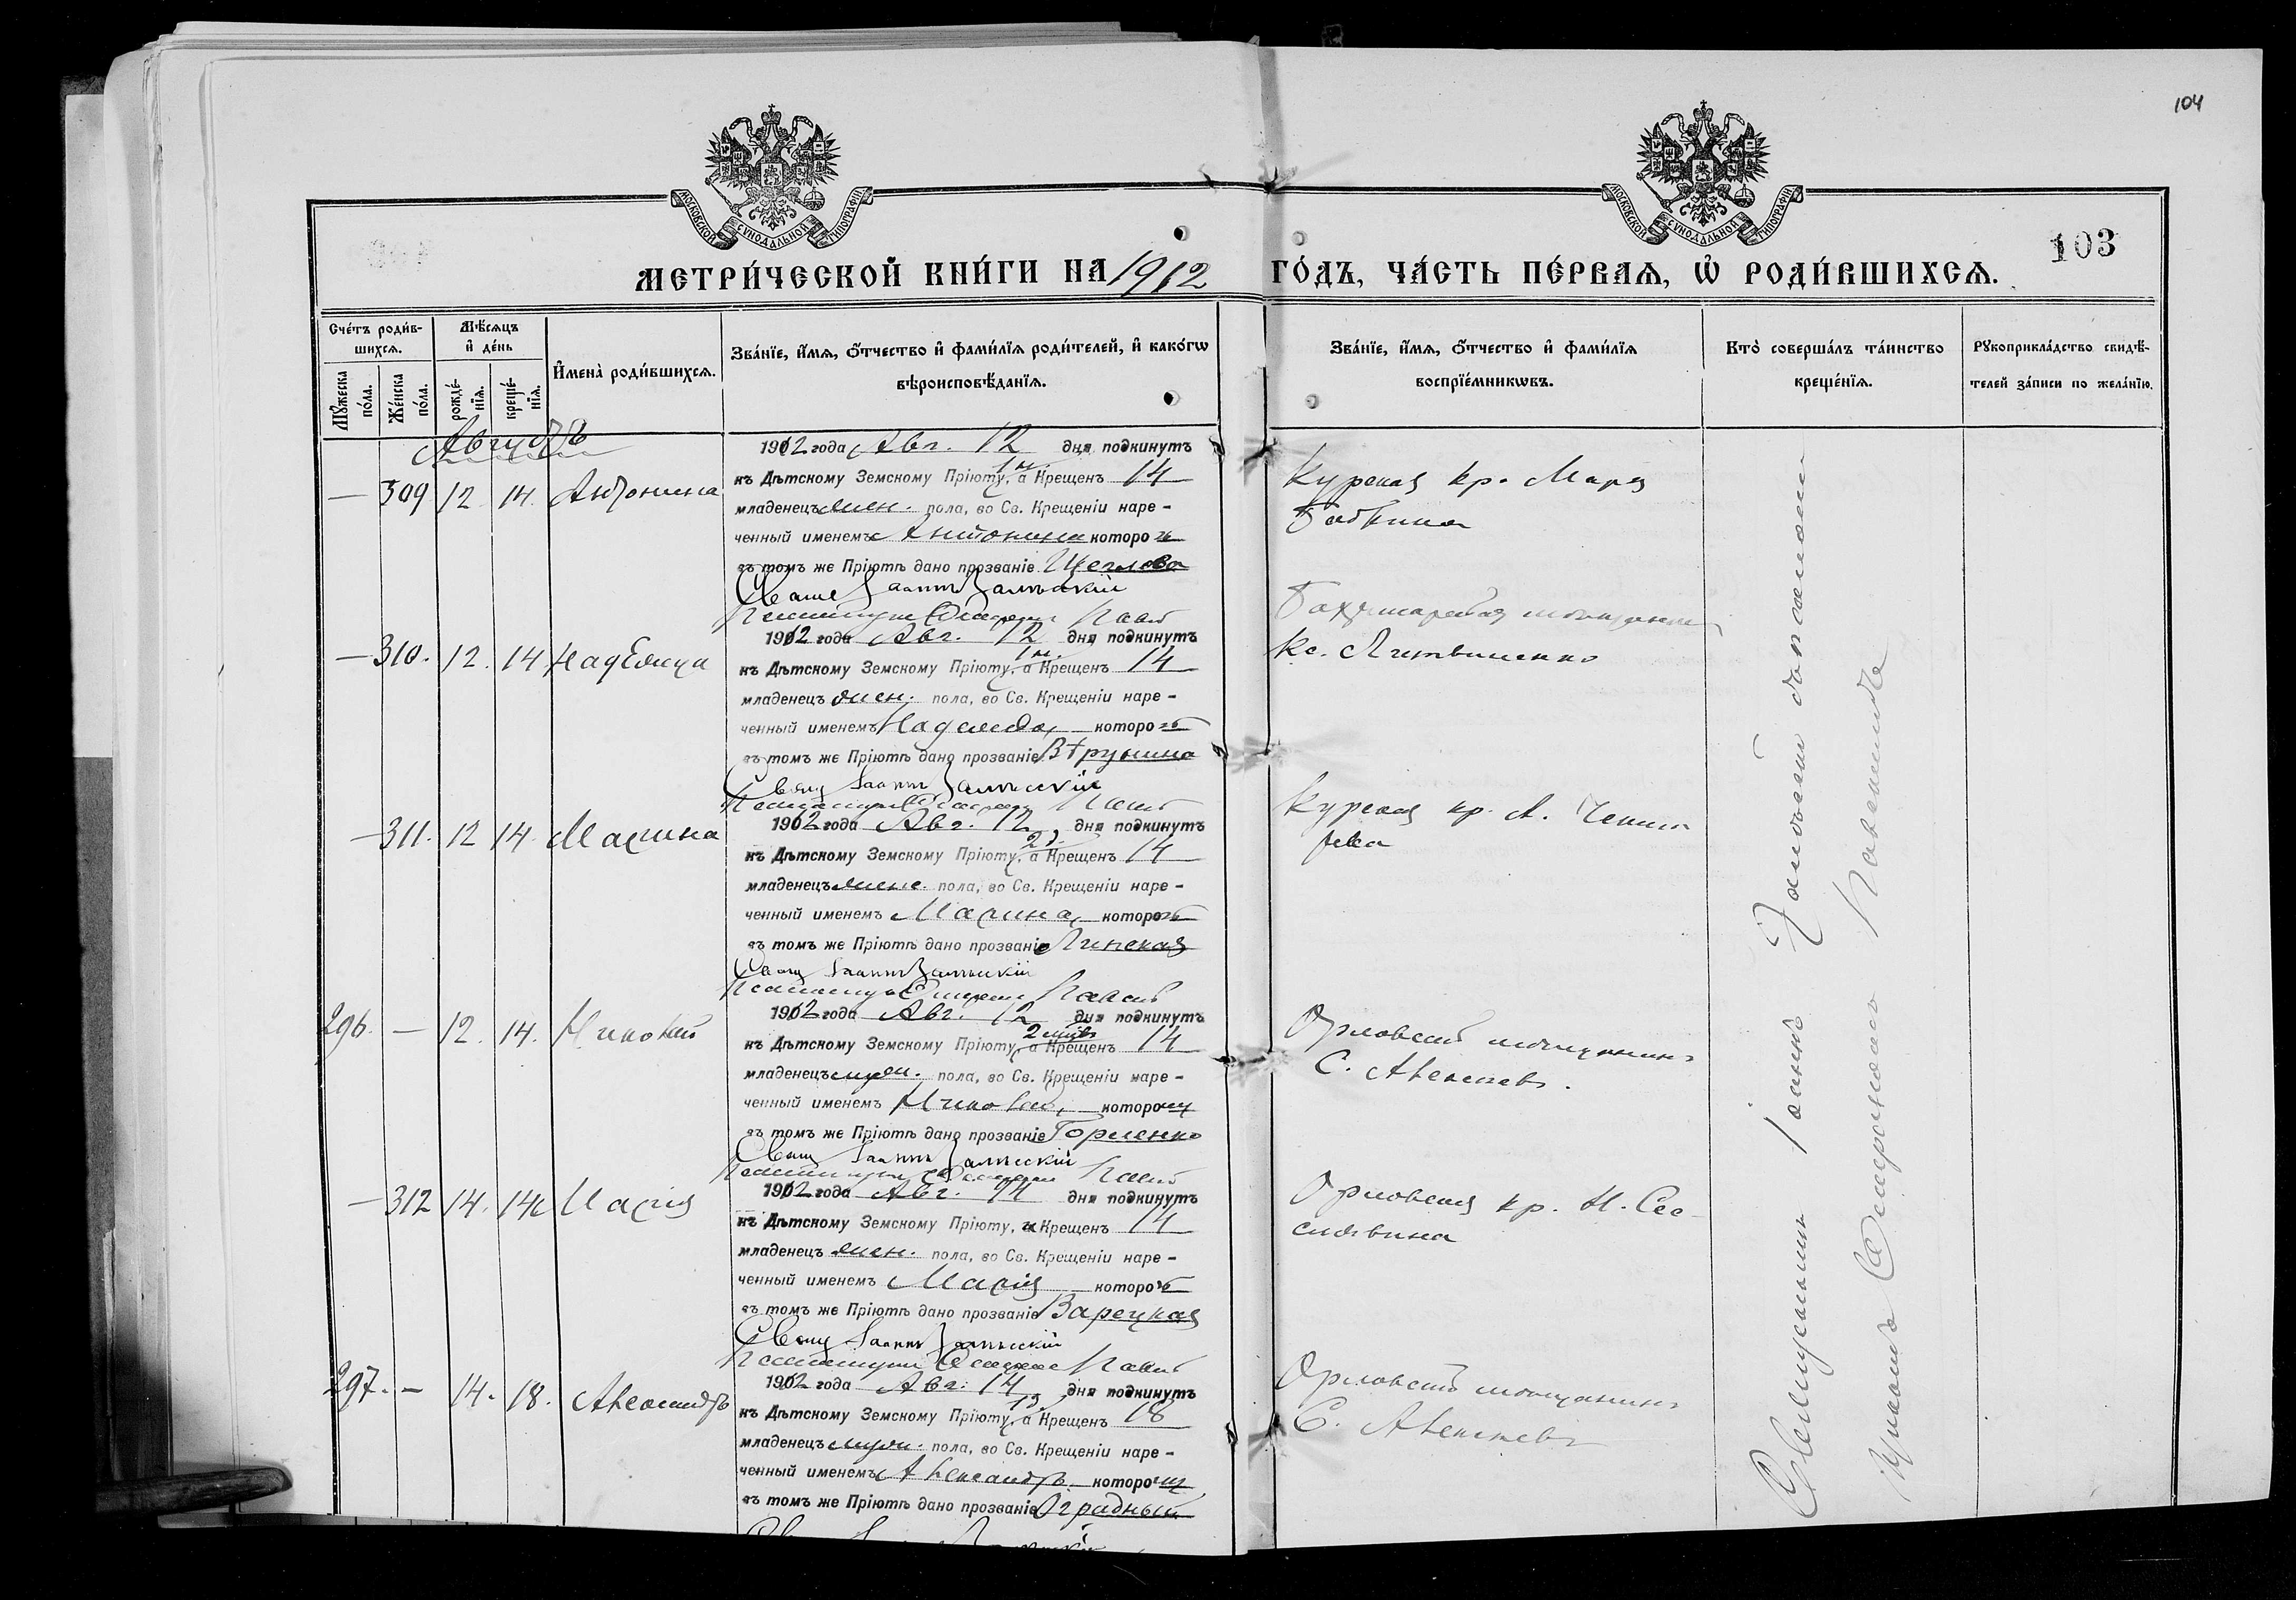 104
МОСКОВСКОЙ СѴНОДАЛЬНОЙ ТИПОГРАФІИ
МОСКОВСКОЙ СѴНОДАЛЬНОЙ ТИПОГРАФІИ
103
МЕТРИ́ЧЕСКОЙ КНИ́ГИ НА 1912 ГО́ДЪ, ЧА́СТЬ ПЕ́РВАѦ, Ѡ҆ РОДИ́ВШИХСѦ.
Сче́тъ роди́в-
шихсѧ.
Мꙋ́жеска по́ла.
Же́нска по́ла.
Мѣ́сѧцъ
и҆ де́нь
рожде́-нїѧ.
креще́-нїѧ.
И҆мена̀ роди́вшихсѧ.
Зва́нїе, и҆́мѧ, ѻ҆́тчество и҆ фами́лїѧ роди́телей, и҆ како́гѡ
вѣроисповѣ́данїѧ.
Зва́нїе, и҆́мѧ, ѻ҆́тчество и҆ фами́лїѧ
воспрїе́мникѡвъ.
Кто̀ соверша́лъ та́инство
креще́нїѧ.
Рꙋкоприкла́дство свидѣ́-
телей за́писи по жела́нїю.
Августъ
— 309 12 14. Антонина
1912 года Авг. 12 дня подкинутъ
къ Дѣтскому Земскому Пріюту, а Крещенъ 14
младенецъ жен. пола, во Св. Крещеніи наре-
ченный именемъ Антонина которой
въ томъ же Пріютѣ дано прозваніе Щеглова
Курская кр. Марія
— 310. 12. 14 Надежда
1912 года Авг. 12 дня подкинутъ
къ Дѣтскому Земскому Пріюту, а Крещенъ 14
младенецъ жен. пола, во Св. Крещеніи наре-
ченный именемъ Надежда, которой
въ томъ же Пріютѣ дано прозваніе Вѣтрунина
Кс. Литвиненко
— 311. 12 14. Марина
1912 года Авг. 12 дня подкинутъ
къ Дѣтскому Земскому Пріюту, а Крещенъ 14
младенецъ женс. пола, во Св. Крещеніи наре-
ченный именемъ Марина, которой
въ томъ же Пріютѣ дано прозваніе Линская
Курская кр. А.
296. — 12. 14. Николай
1912 года Авг. 12 дня подкинутъ
къ Дѣтскому Земскому Пріюту, а Крещенъ 14
младенецъ муж. пола, во Св. Крещеніи наре-
ченный именемъ Николай, которому
въ томъ же Пріютѣ дано прозваніе Горленко
Орловскій мѣщанинъ
С. Алексѣевъ.
— 312 14. 14 Марія
1912 года Авг. 14 дня подкинутъ
къ Дѣтскому Земскому Пріюту, и Крещенъ 14
младенецъ жен. пола, во Св. Крещеніи наре-
ченный именемъ Марія которой
въ томъ же Пріютѣ дано прозваніе Варецкая
Орловская кр. Н.
297. — 14. 18. Александръ
1912 года Авг. 14 дня подкинутъ
къ Дѣтскому Земскому Пріюту, а Крещенъ 18
младенецъ муж. пола, во Св. Крещеніи наре-
ченный именемъ Александръ которому
въ томъ же Пріютѣ дано прозваніе Оградный
Орловскій мѣщанинъ
С. Алексѣевъ